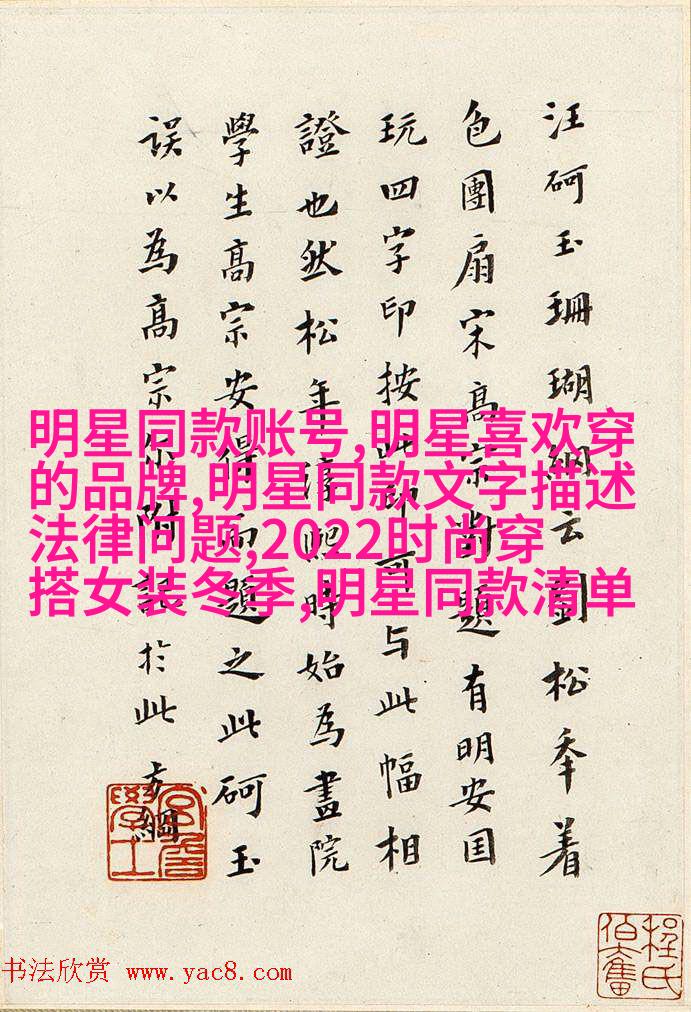 汪砢玉珊瑚網云劉松年着
色團扇宋髙宗對題有明安国
玩四字印按此印可与此幅相
證也然松年淳熙時始為畫院
學生髙宗安得而題之此砢玉
誤以為髙宗尔附記於此方綱
宮詹學士
程氏伯奮
明星同款账号,明星喜欢穿
的品牌,明星同款文字描述
法律问题,2022时尚穿
搭女装冬季,明星同款清单
书法欣赏 www.yac8.com